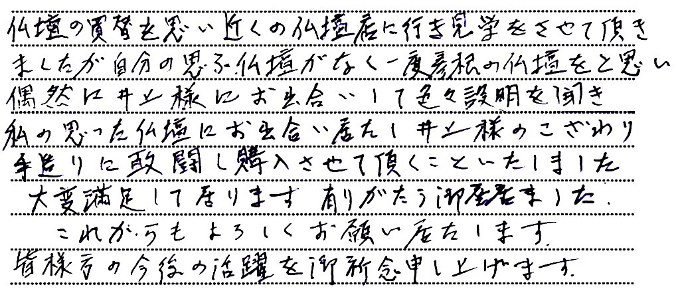 仏壇の買替を思い近くの仏壇店に行き見学をさせて頂き
ましたが自分の思ふ仏壇がなく一度彦根の仏壇をと思い
偶然に井上様にお出合いして色々説明を聞き
私の思った仏壇にお出合い居たし井上様のこざわり
手造りに敢闘し購入させて頂くこといたしました
大変満足して居ります 有りがたう御座居ました.
これからもよろしくお願い居たします.
皆様方の今後の活躍を御祈念申し上げます.